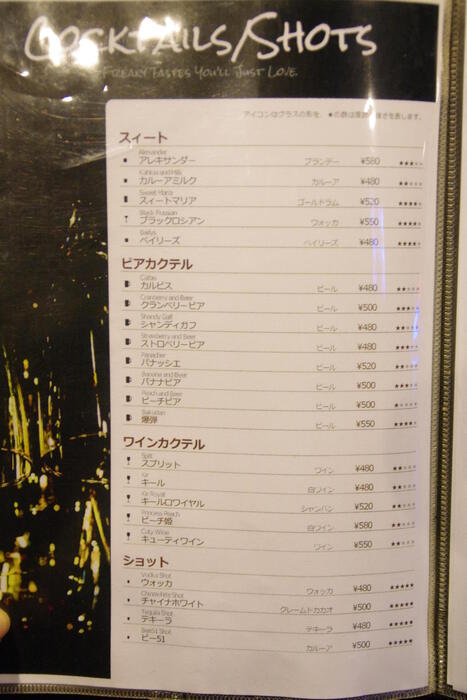 COCKTAILS/SHOTS
FREAKY TASTES YOU'LL JUST LOVE.
アイコンはグラスの形を、★の数は度数
スィート
Alexander
アレキサンダー ブランデー ¥580 ★★★★★
Kahlua and Milk
カルーアミルク カルーア ¥480 ★★★★★
Sweet Maria
スィートマリア ゴールドラム ¥520 ★★★★★
Black Russian
ブラックロシアン ウォッカ ¥550 ★★★★★
Baileys
ベイリーズ ベイリーズ ¥480 ★★★★★
ビアカクテル
カルピス ビール ¥480 ★★★★★
Cranberry and Beer
クランベリービア ビール ¥500 ★★★★★
Shandy Gaff
シャンディガフ ビール ¥480 ★★★★★
Strawberry and Beer
ストロベリービア ビール ¥480 ★★★★★
Panacher
パナッシェ ビール ¥520 ★★★★★
Banana and Beer
バナナビア ビール ¥500 ★★★★★
Peach and Beer
ピーチビア ビール ¥500 ★★★★★
Bakudan
爆弾 ビール ¥550 ★★★★★
ワインカクテル
Split
スプリット ワイン ¥480 ★★★★★
Kir
キール 白ワイン ¥480 ★★★★★
Kir Royal
キールロワイヤル シャンパン ¥520 ★★★★★
Princess Peach
ピーチ姫 白ワイン ¥580 ★★★★★
Cuty Wine
キューティワイン ワイン ¥550 ★★★★★
ショット
Vodka Shot
ウォッカ ウォッカ ¥480 ★★★★★
チャイナホワイト クレームドカカオ ¥500 ★★★★★
Tequila Shot
テキーラ テキーラ ¥480 ★★★★★
Bee51 Shot
ビー51 カルーア ¥500 ★★★★★